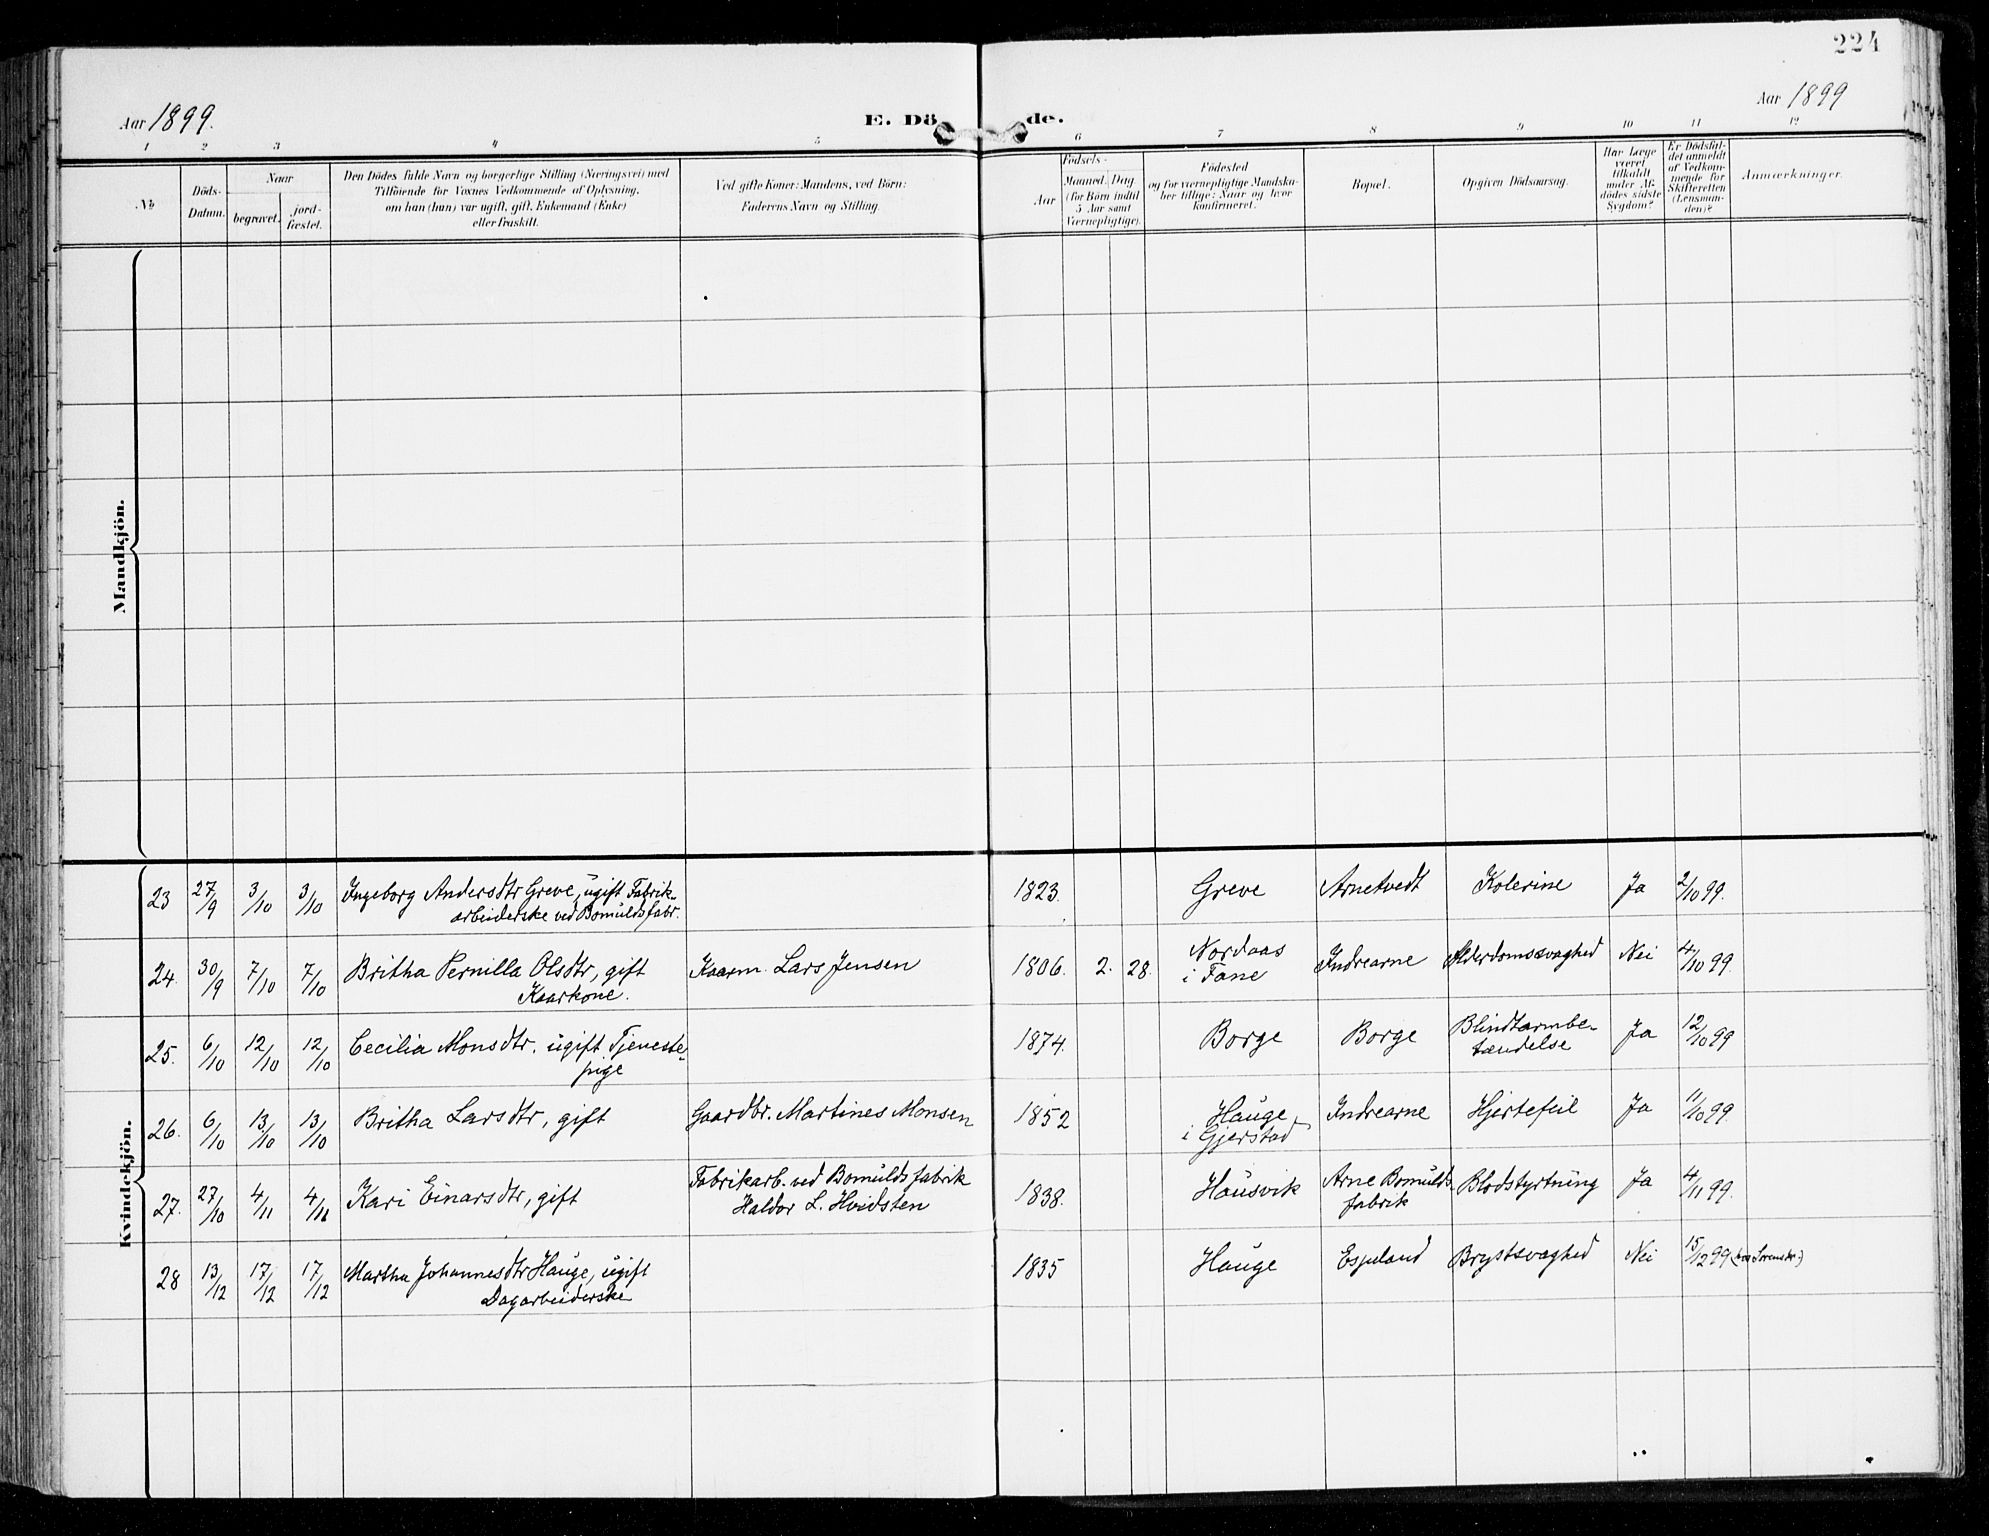 224
Aar 1899.
E. Dö
de.
Aar 1899
1 2 3 4 5 6 7 8 9 10 11 12
No
Döds-
Datum.
Naar
begravet.
jord-
fæstet.
Den Dödes fulde Navn og borgerlige Stilling (Næringsvei) med
Tilföiende for Voxnes Vedkommende af Oplysning,
om han (hun) var ugift, gift, Enkemand (Enke)
eller fraskilt.
Ved gifte Koner: Mandens, ved Börn:
Faderens Navn og Stilling.
Födsels-
Aar
Maaned. Dag.
(for Börn indtil
5 Aar samt
Værnepligtige).
Födested
og for værnepligtige Mandska-
ber tillige: Naar og hvor
konfirmeret.
Bopæl.
Opgiven Dödsaarsag.
Har Læge
været
tilkaldt
under Af-
dödes sidste
Sygdom?
Er Dödsfal-
det anmeldt
af Vedkom-
mende for
Skifteretten
(Lensman-
den)?
Anmærkninger.
Mandkjön.
Kvindekjön.
23 27/9 3/10 3/10 Ingeborg Andersdtr Greve, ugift Fabrik-
arbeiderske ved Bomuldsfabr.
1823. Greve Arnetvedt Kolerine Ja 2/10 99.
24. 30/9 7/10 7/10 Britha Pernilla Olsdtr, gift
Kaarkone.
Kaarm. Lars Jensen 1806. 2. 28. Nordaas
i Fane
Indrearne Alderdomssvaghed Nei 4/10 99.
25. 6/10 12/10 12/10 Cecilia Monsdtr. ugift Tjeneste-
pige
1874. Borge Borge Blindtarmbe-
tændelse
Ja 12/10 99
26. 6/10 13/10 13/10 Britha Larsdtr, gift Gaardbr. Martines Monsen 1852 Hauge
i Gjerstad
Indrearne Hjertefeil Ja 11/10 99.
27. 27/10 4/11 4/11 Kari Einarsdtr, gift Fabrikarb. ved Bomuldsfabrik
Haldor L. Hvidsten
1838. Hausvik Arne Bomulds-
fabrik
Blodstyrtning Ja 4/11 99.
28 13/12 17/12 17/12 Martha Johannesdtr Hauge, ugift
Dagarbeiderske
1835 Hauge Espeland Brystsvaghed Nei 15/12 99